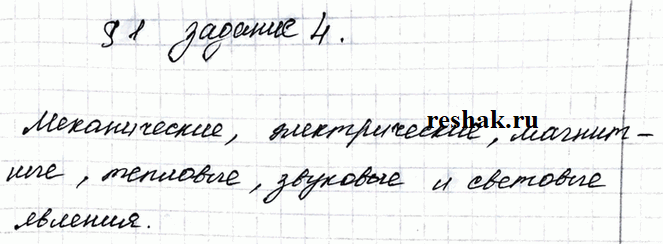 §1 задание 4.
reshak.ru
Механические, электрические, магнит-
ные, тепловые, звуковые и световые
явления.